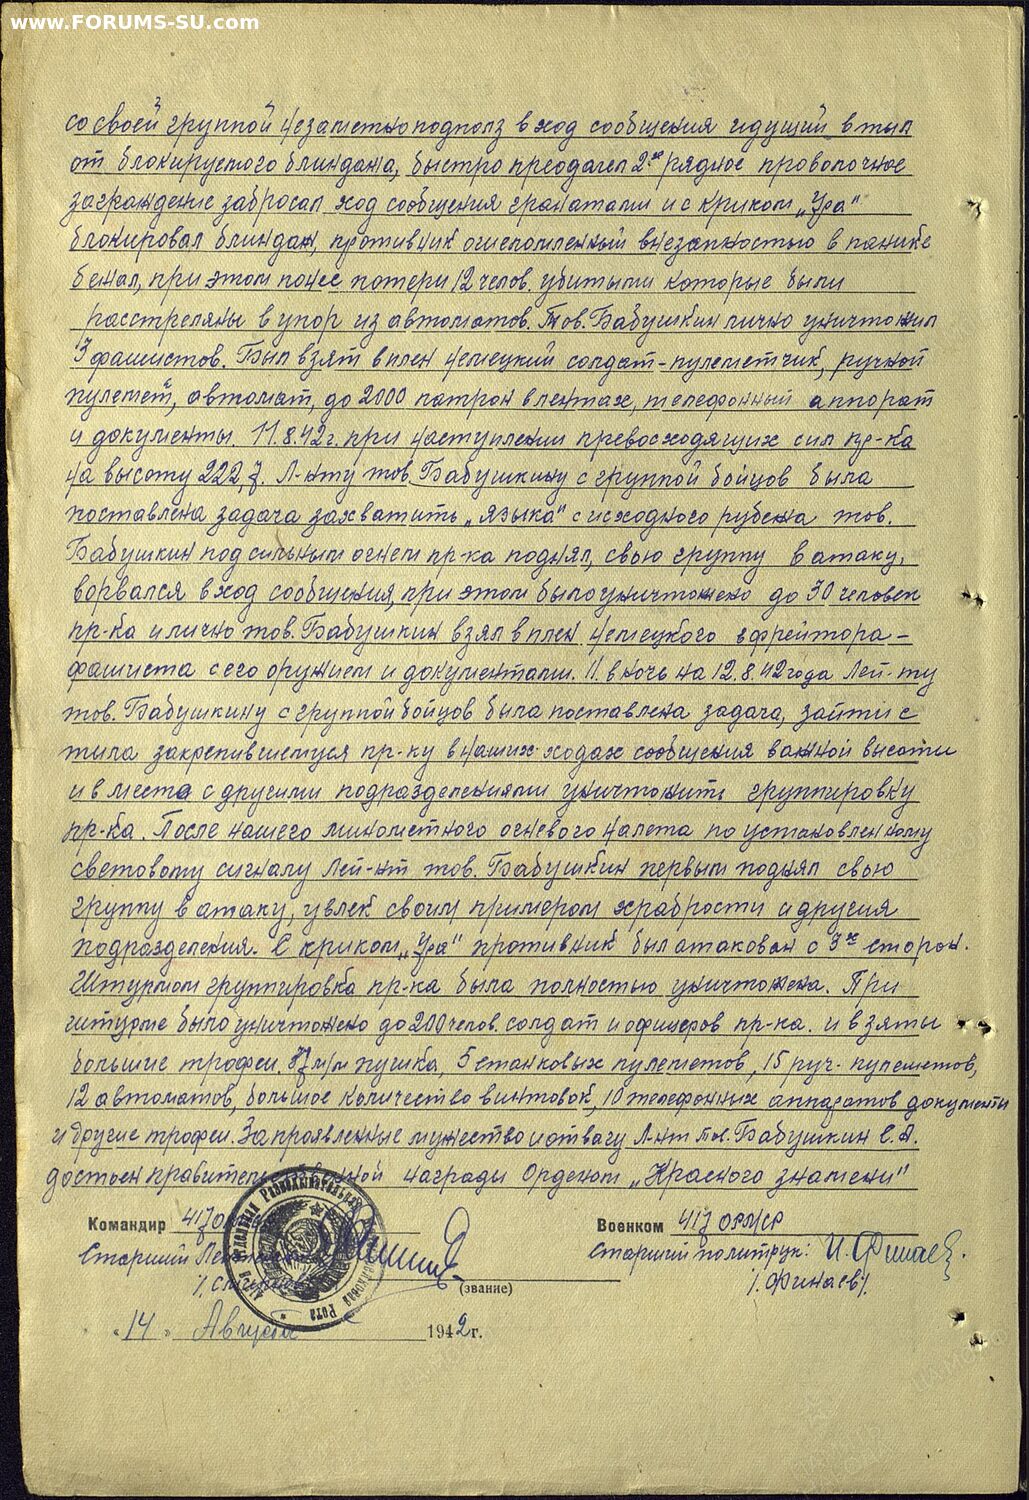 www.FORUMS-SU.com
со своей группой незаметно подполз в ход сообщения идущий в тыл
от блокируемого блиндажа, быстро преодалел 2-х рядное проволочное
заграждение забросал ход сообщения гранатами и с криком „Ура"
блокировал блиндаж, противник ошеломленный внезапностью в панике
бежал, при этом понес потери 12 челов. убитыми которые были
расстреляны в упор из автоматов. Тов. Бабушкин лично уничтожил
3 фашистов. Был взят в плен немецкий солдат-пулеметчик, ручной
пулемет, автомат, до 2000 патрон в лентах, телефонный аппорат
и документы. 11.8.42г. при наступлении превосходящих сил пр-ка
на высоту 222,7. Л-нту тов. Бабушкину с группой бойцов была
поставлена задача захватить „языка" с исходного рубежа тов.
Бабушкин под сильным огнем пр-ка поднял, свою группу в атаку,
ворвался в ход сообщения, при этом было уничтожено до 30 человек
пр-ка и лично тов. Бабушкин взял в плен немецкого ефрейтора-
фашиста с его оружием и документами. 11. в ночь на 12.8.42 года Лей-ту
тов. Бабушкину с группой бойцов была поставлена задача, зайти с
тыла закрепившемуся пр-ку в наших ходах сообщения важной высоты
и в места с другими подразделениями уничтожить группировку
пр-ка. После нашего минометного огневого налета по установленному
световому сигналу Лей-нт тов. Бабушкин первым поднял свою
группу в атаку, увлек своим примером храбрости и другия
подразделения. С криком „Ура" противник был атакован с 3-х сторон.
Штурмом группировка пр-ка была полностью уничтожена. При
штурме было уничтожено до 200 челов. солдат и офицеров пр-ка. и взяты
большие трофеи, 37 м/м пушка, 5 станковых пулеметов, 15 руч. пулеметов,
12 автоматов, большое количество винтовок, 10 телефонных аппаратов документы
и другие трофеи. За проявленные мужество и отвагу Л-нт тов. Бабушкин С.А.
достоен правительственной награды Орденом „Красного знамени"
Командир 417 Военком 417 ОРМСР
Старший Старший политрук: И. Финаев.
(звание) /. Финаев/.
Отдельная Разведывательная Рота
„14" Августа 1942 г.